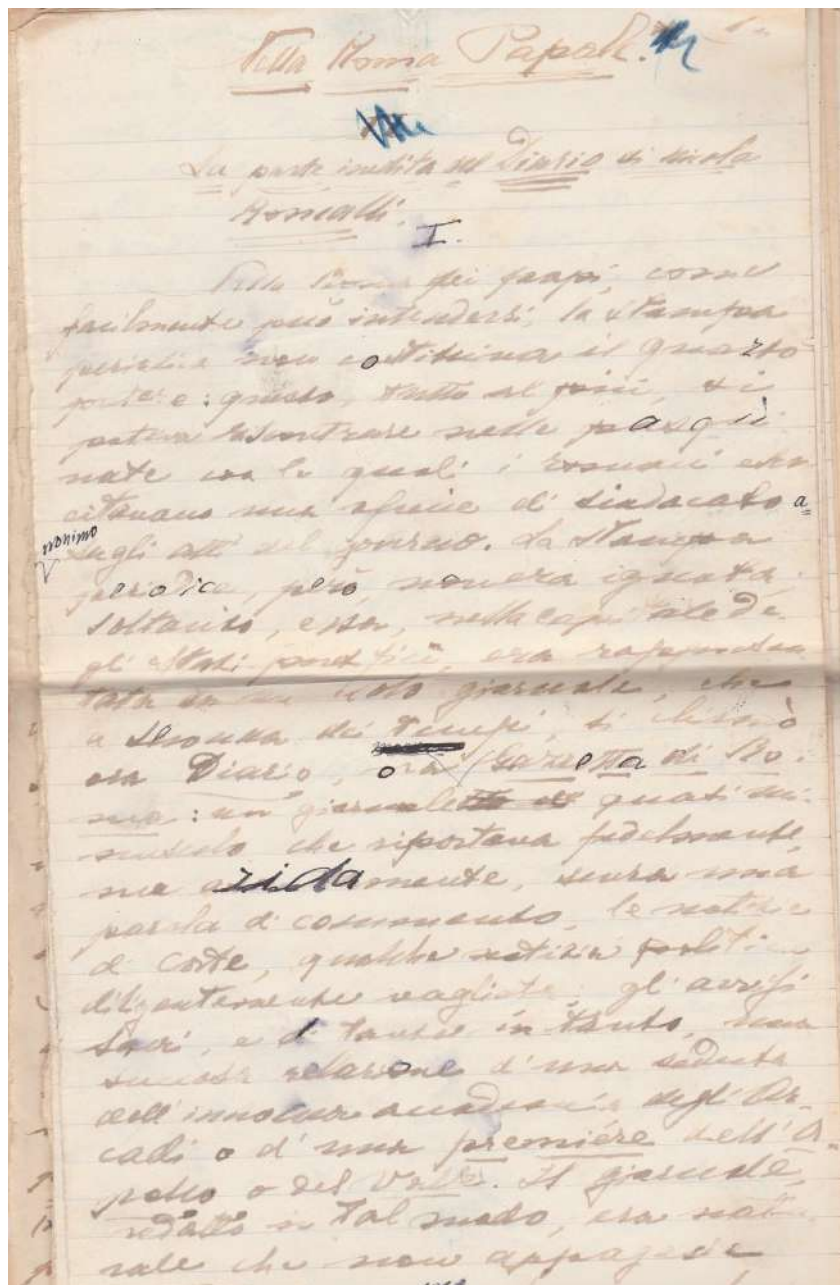 Nella Roma Papale.
La parte inedita del Diario di Nicola
Roncalli.
I.
Nella Roma dei papi, come
facilmente può intendersi, la stampa
periodica non costituiva il quarto
potere: questo, tutto al più, si
poteva riscontrare nelle pasqui
nate con le quali i romani eser
citavano una specie di sindacato a=
nonimo
sugli atti del governo. La stampa
periodica, però, non era ignota;
soltanto, essa, nella capitale de
gli stati pontifici, era rappresen
tata da un solo giornale, che
a seconda dei tempi, si chiamò
ora Diario, ora Gazzetta di Ro=
ma: un giornaletto quasi mi
nuscolo che riportava fedelmente,
ma aridamente, senza una
parola di commento, le notizie
di corte, qualche notizia politica
diligentemente vagliata, gli avvisi
sacri, e di tanto in tanto, una
succosa relazione d'una seduta
dell'innocua accademia degli Ar=
cadi o d'una première dell'A=
pollo o del Valle. Il giornale,
redatto in tal modo, era natu
rale che non appagasse